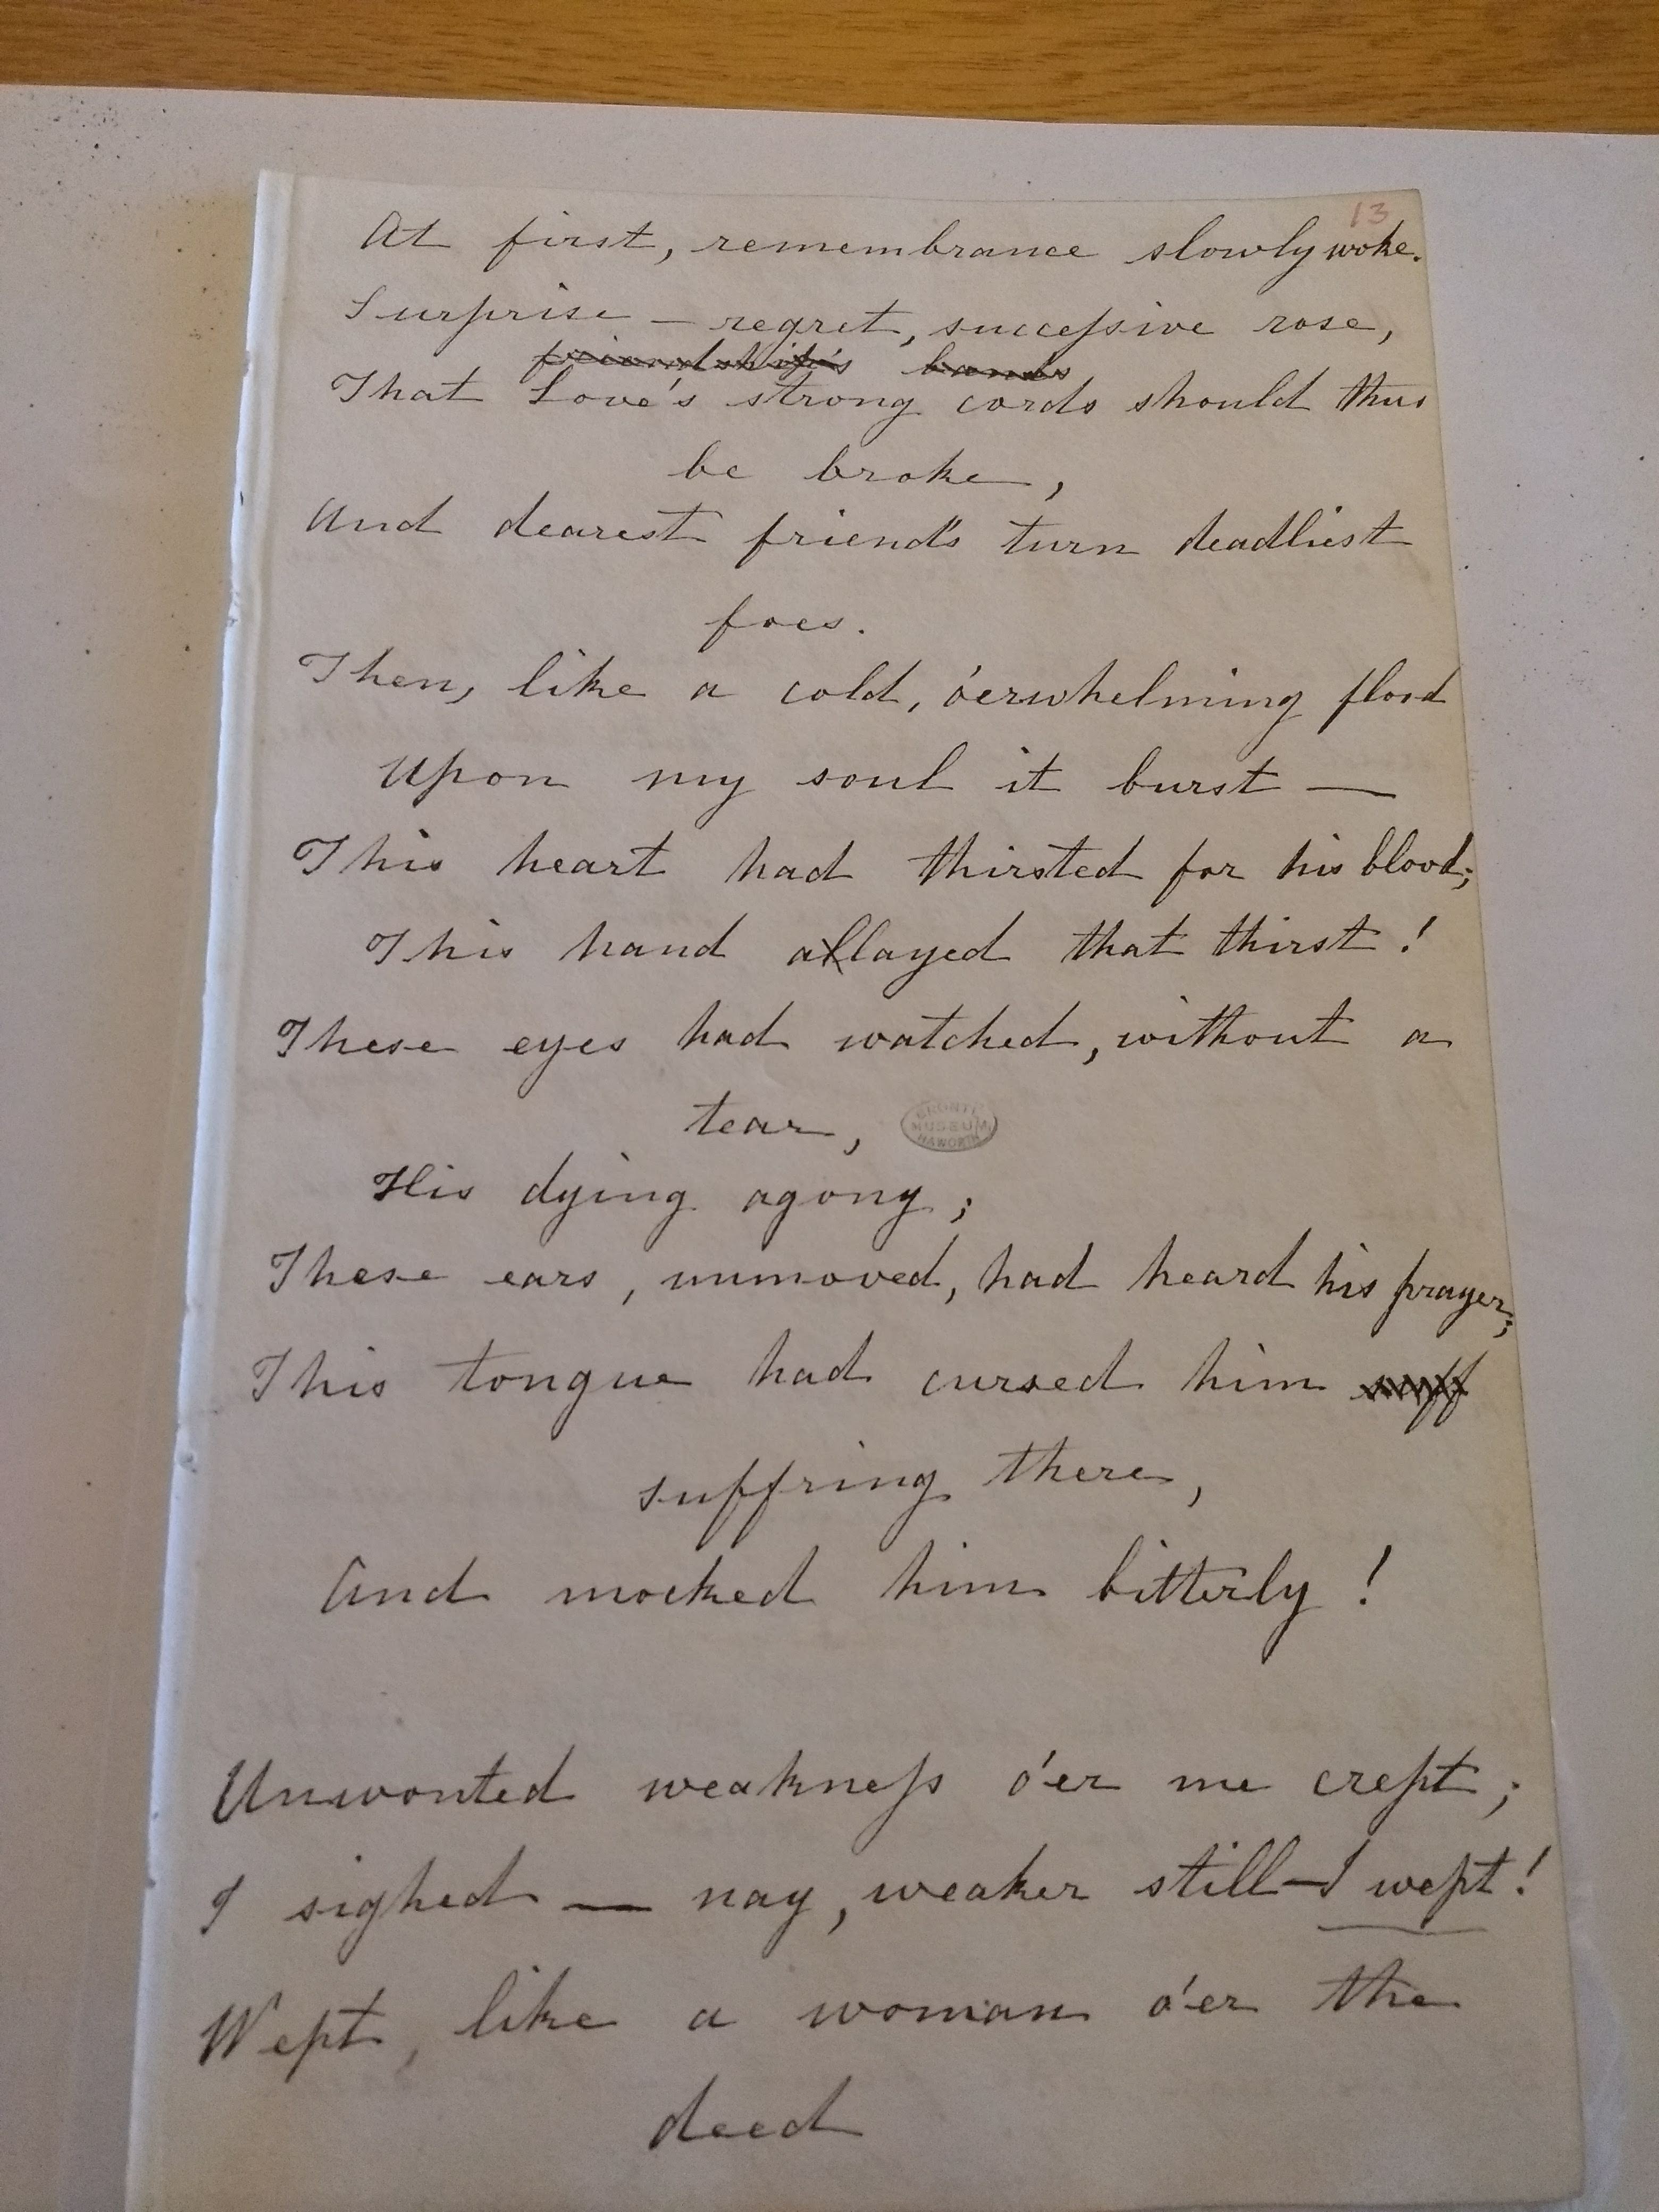 13
At first, remembrance slowly woke.
Surprise — regret, successive rose,
friendship's bands
That Love's strong cords should thus
be broke,
And dearest friends turn deadliest
foes.
Then, like a cold, o'erwhelming flood
Upon my soul it burst —
This heart had thirsted for his blood;
This hand allayed that thirst!
These eyes had watched, without a
tear,
BRONTE MUSEUM HAWORTH
His dying agony;
These ears, unmoved, had heard his prayer;
This tongue had cursed him suff
suffring there,
And mocked him bitterly!
Unwonted weakness o'er me crept;
I sighed — nay, weaker still — I wept!
Wept, like a woman o'er the
deed